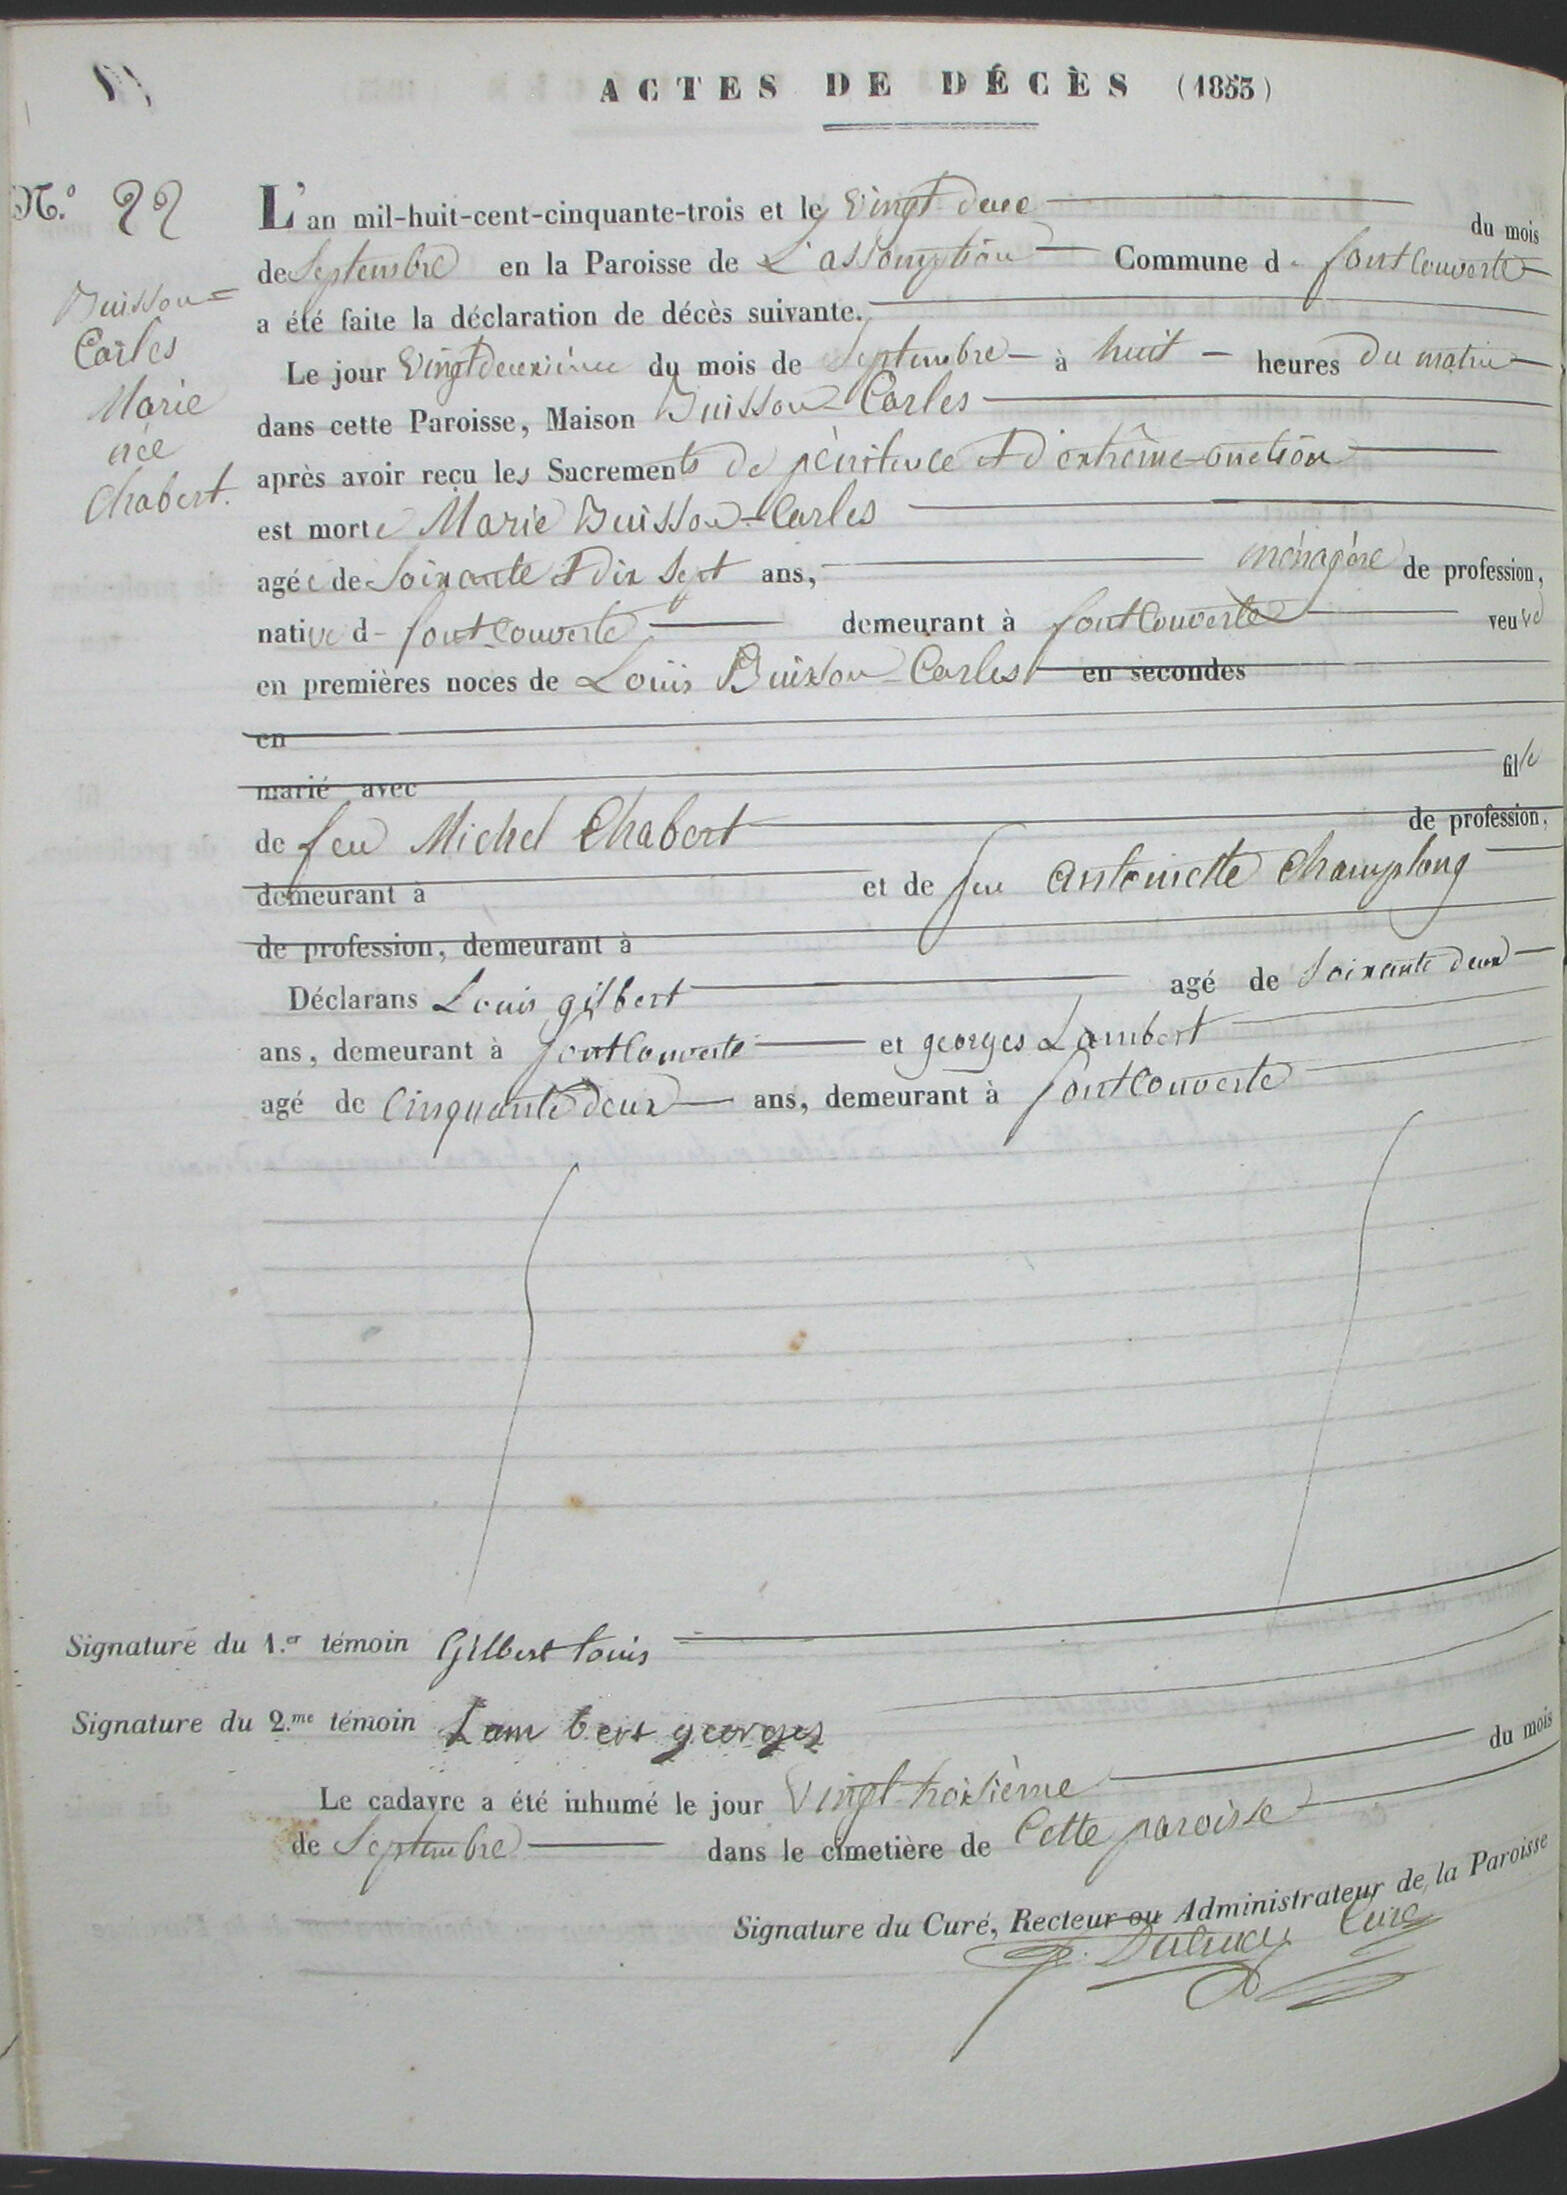 ACTES DE DÉCÈS (1853)
N.o 22
Buisson=
Carles
Marie
née
Chabert.
L'an mil-huit-cent-cinquante-trois et le vingt deux du mois
de Septembre en la Paroisse de L'assomption Commune d. fontcouverte
a été faite la déclaration de décès suivante.
Le jour vingt deuxième du mois de Septembre à huit heures du matin
dans cette Paroisse, Maison Buisson-Carles
après avoir reçu les Sacrements de pénitence et d'extrême-onction
est morte Marie Buisson-Carles
agée de Soixante et dix Sept ans, ménagère de profession,
native d- fontcouverte demeurant à fontcouverte veuve
en premières noces de Louis Buisson-Carles en secondes
en
marié avec fille
de feu Michel Chabert de profession,
demeurant à et de feu antoinette Champlong
de profession, demeurant à
Déclarans Louis gilbert agé de Soixante deux
ans, demeurant à fontcouverte et georges Lambert
agé de Cinquante deux ans, demeurant à fontcouverte
Signature du 1.er témoin Gilbert louis
Signature du 2.me témoin Lam bert georges
Le cadavre a été inhumé le jour vingt-troisième du mois
de Septembre dans le cimetière de Cette paroisse
Signature du Curé, Recteur ou Administrateur de la Paroisse
Curé